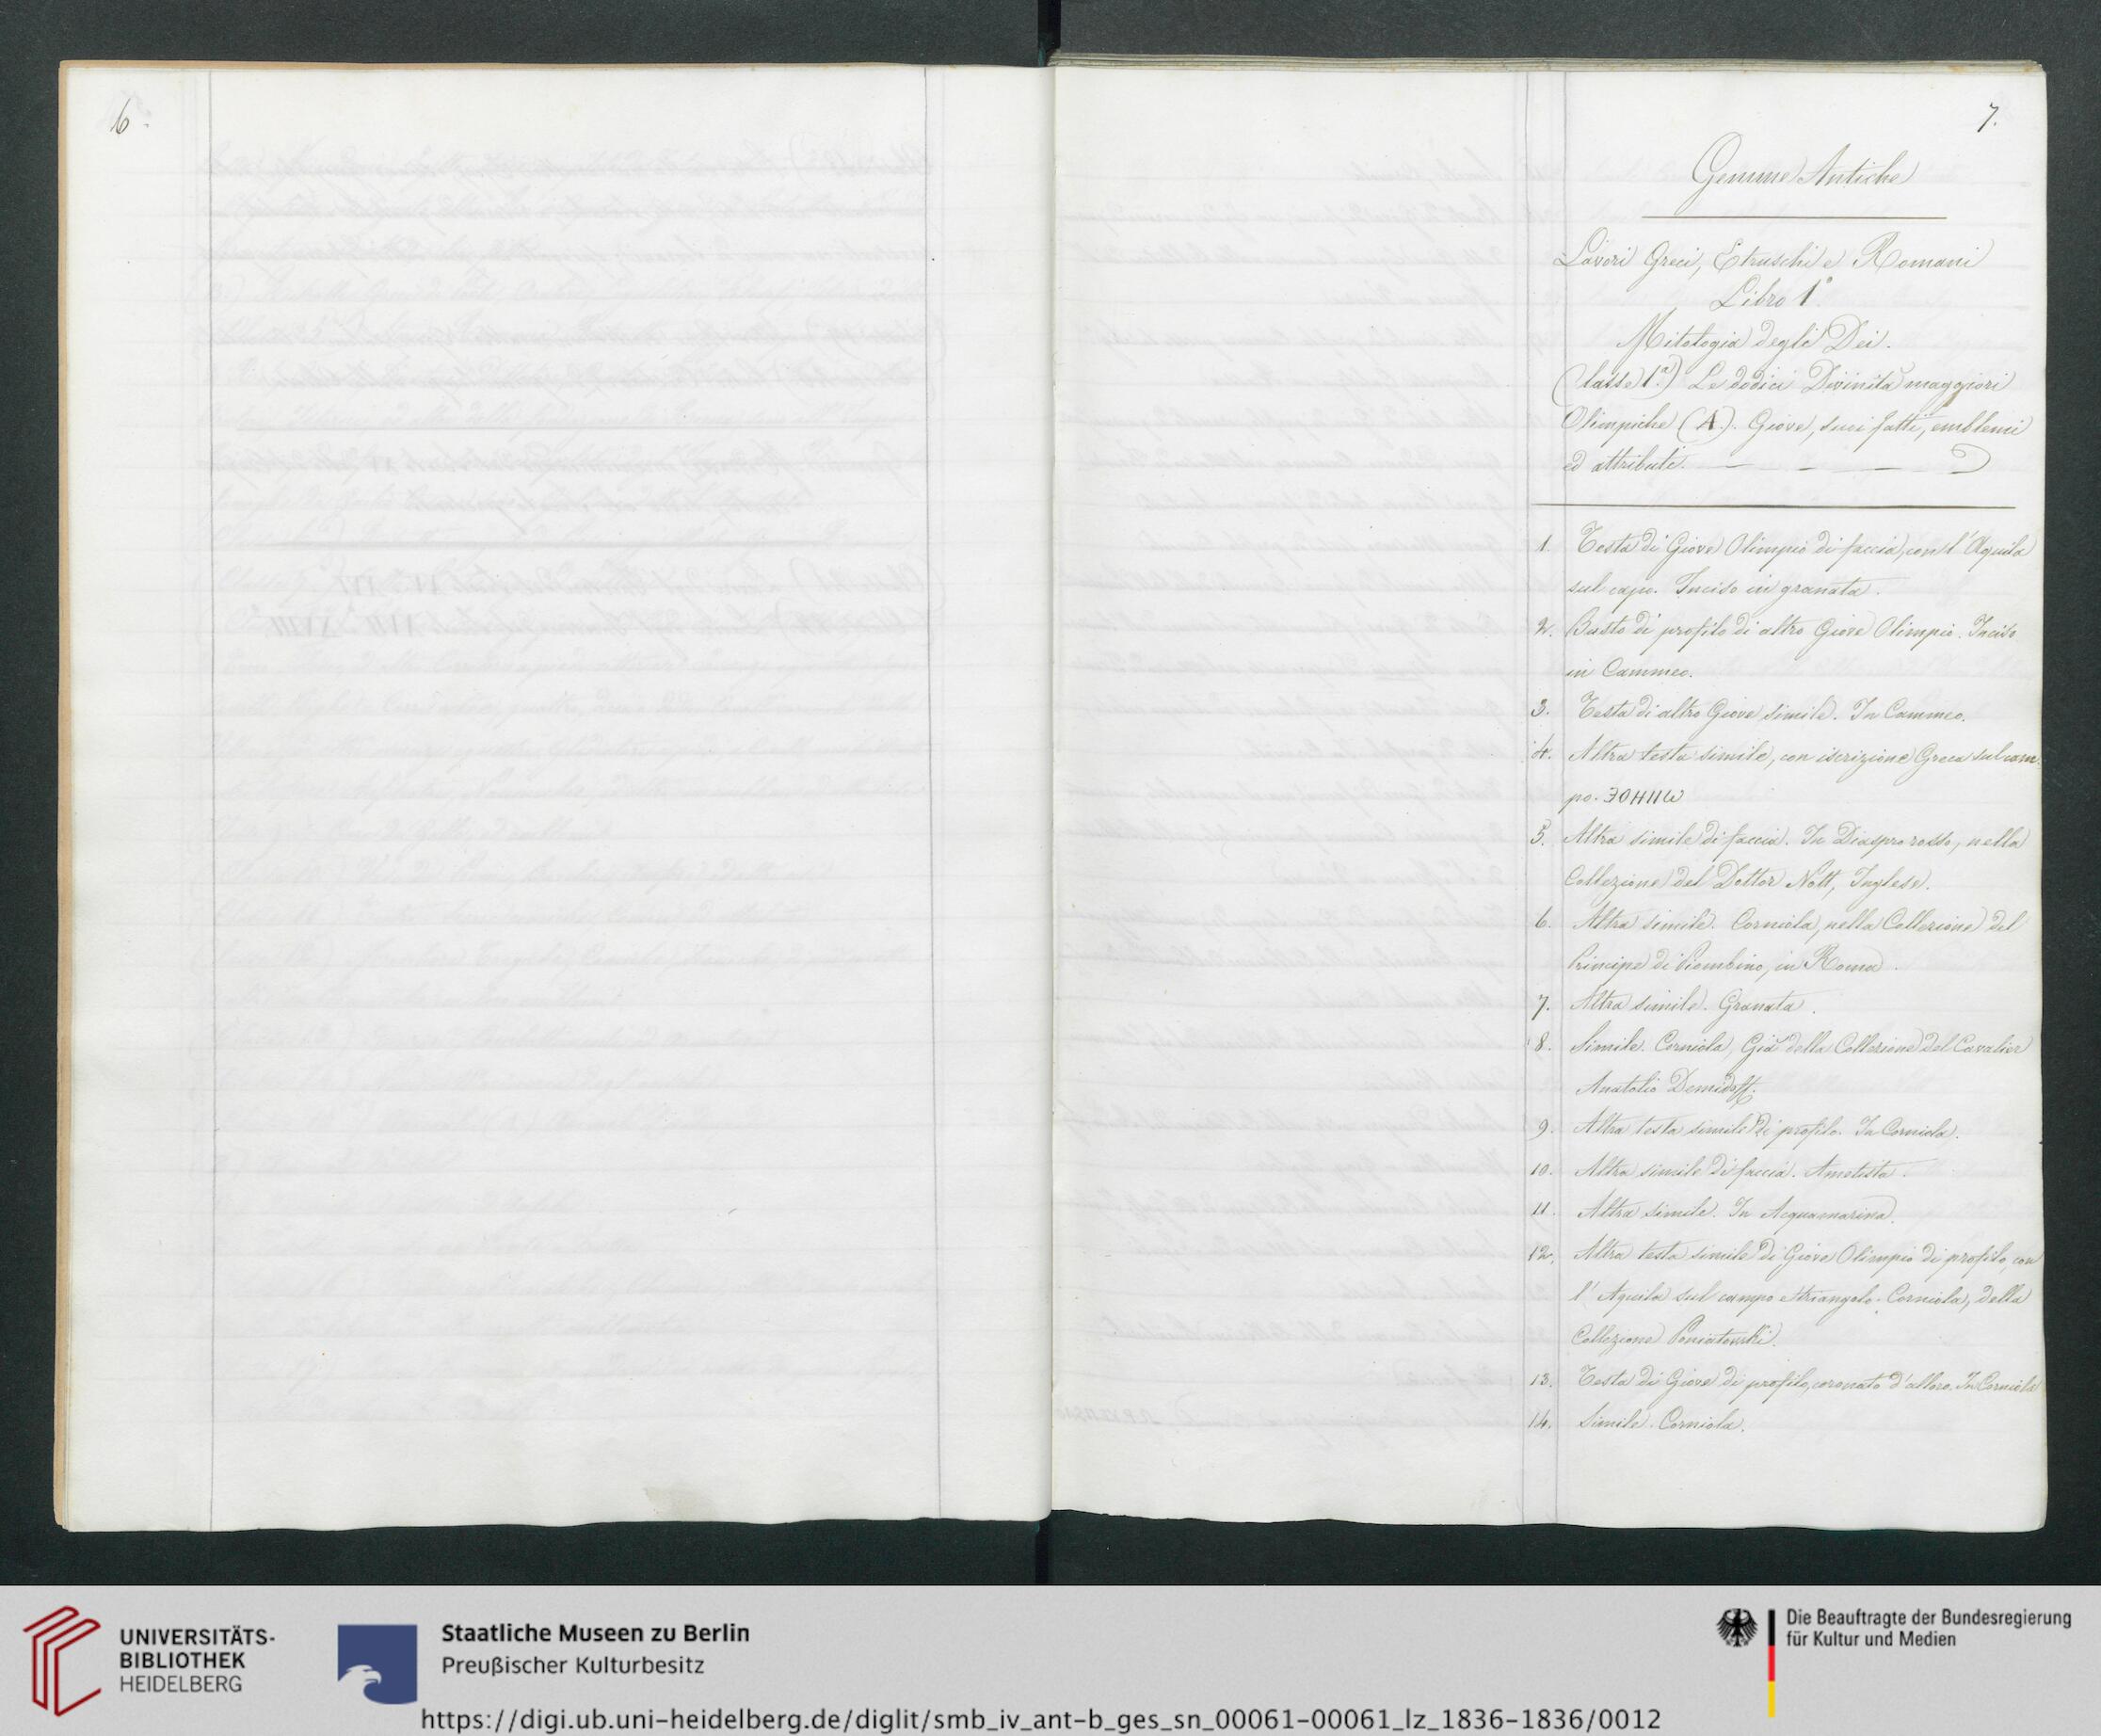 6.
7.
Gemme Antiche
Lavori Greci, Etruschi e Romani
Libro 1°
Mitologia degli Dei.
(Classe 1ª) Le dodici Divinità maggiori
Olimpiche (A). Giove, suoi fatti, emblemi
ed attributi. — — —
1. Testa di Giove Olimpio di faccia, con l'Aquila
sul capo. Inciso in granata.
2. Busto di profilo di altro Giove Olimpio. Inciso
in Cammeo.
3. Testa di altro Giove simile. In Cammeo.
4. Altra testa simile, con iscrizione Greca sul cam
po.
5. Altra simile di faccia. In Diaspro rosso, nella
Collezione del Dottor Nott, Inglese.
6. Altra simile. Corniola, nella Collezione del
Principe di Piombino, in Roma.
7. Altra simile. Granata.
8. Simile. Corniola, Già della Collezione del Cavalier
Anatolio Demidoff.
9. Altra testa simile di profilo. In Corniola.
10. Altra simile di faccia. Ametista.
11. Altra simile. In Acquamarina.
12. Altra testa simile di Giove Olimpio di profilo, con
l'Aquila sul campo e triangolo. Corniola, della
Collezione Poniatowski.
13. Testa di Giove di profilo, coronato d'alloro. In Corniola
14. Simile. Corniola.
UNIVERSITÄTS-
BIBLIOTHEK
HEIDELBERG
Staatliche Museen zu Berlin
Preußischer Kulturbesitz
Die Beauftragte der Bundesregierung
für Kultur und Medien
https://digi.ub.uni-heidelberg.de/diglit/smb_iv_ant-b_ges_sn_00061-00061_lz_1836-1836/0012